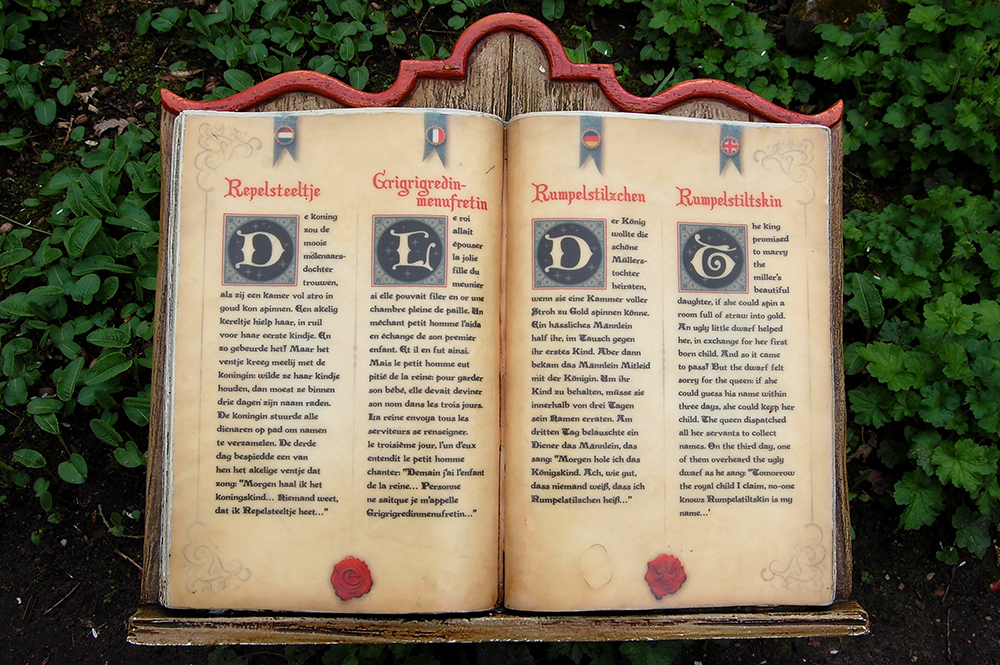 Repelsteeltje
De koning
zou de
mooie
molenaars-
dochter
trouwen,
als zij een kamer vol stro in
goud kon spinnen. Een akelig
kereltje hielp haar, in ruil
voor haar eerste kindje. En
zo gebeurde het! Maar het
ventje kreeg meelij met de
koningin: wilde ze haar kindje
houden, dan moest ze binnen
drie dagen zijn naam raden.
De koningin stuurde alle
dienaren op pad om namen
te verzamelen. De derde
dag bespiedde een van
hen het akelige ventje dat
zong: "Morgen haal ik het
koningskind... Niemand weet,
dat ik Repelsteeltje heet..."
Grigrigredin-
menufretin
Le roi
allait
épouser
la jolie
fille du
meunier
si elle pouvait filer en or une
chambre pleine de paille. Un
méchant petit homme l'aida
en échange de son premier
enfant. Et il en fut ainsi.
Mais le petit homme eut
pitié de la reine: pour garder
son bébé, elle devait deviner
son nom dans les trois jours.
La reine envoya tous les
serviteurs se renseigner.
le troisième jour, l'un d'eux
entendit le petit homme
chanter: "Demain j'ai l'enfant
de la reine... Personne
ne saitque je m'appelle
Grigrigredinmenufretin..."
Rumpelstilzchen
Der König
wollte die
schöne
Müllers-
tochter
heiraten,
wenn sie eine Kammer voller
Stroh zu Gold spinnen könne.
Ein hässliches Männlein
half ihr, im Tausch gegen
ihr erstes Kind. Aber dann
bekam das Männlein Mitleid
mit der Königin. Um ihr
Kind zu behalten, müsse sie
innerhalb von drei Tagen
sein Namen erraten. Am
dritten Tag belauschte ein
Diener das Männlein, das
sang: "Morgen hole ich das
Königskind. Ach, wie gut,
dass niemand weiß, dass ich
Rumpelstilzchen heiß..."
Rumpelstiltskin
The king
promised
to marry
the
miller's
beautiful
daughter, if she could spin a
room full of straw into gold.
An ugly little dwarf helped
her, in exchange for her first
born child. And so it came
to pass! But the dwarf felt
sorry for the queen: if she
could guess his name within
three days, she could keep her
child. The queen dispatched
all her servants to collect
names. On the third day, one
of them overheard the ugly
dwarf as he sang: "Tomorrow
the royal child I claim, no-one
knows Rumpelstiltskin is my
name...'